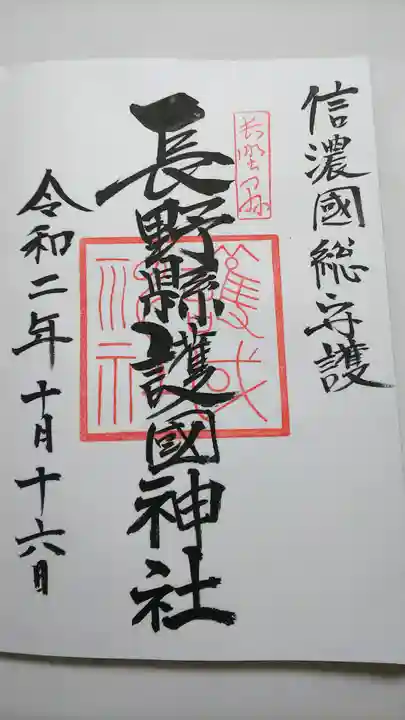 信濃國総守護
長野縣
長野縣護國神社
令和二年十月十六日